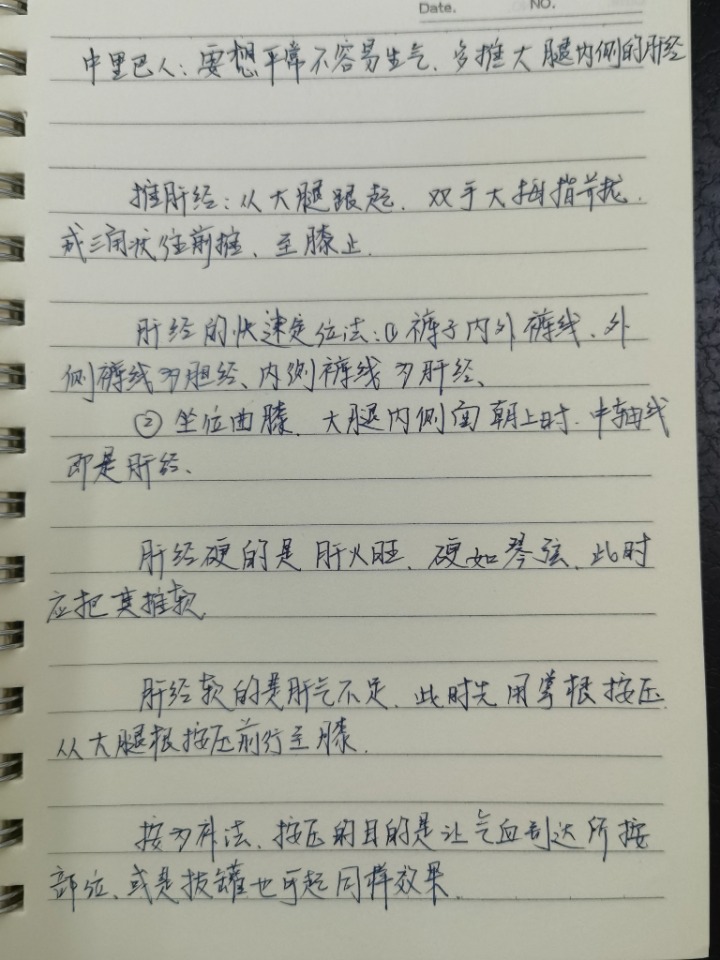 Date. NO.
中里巴人：要想平常不容易生气、多推大腿内侧的肝经
推肝经：从大腿跟起、双手大拇指并拢、
成三角状往前推、至膝止.
肝经的快速定位法：① 裤子内外裤线、外
侧裤线为胆经、内侧裤线为肝经、
② 坐位曲膝、大腿内侧面朝上时、中轴线
即是肝经、
肝经硬的是肝火旺、硬如琴弦、此时
应把其推软
肝经软的是肝气不足、此时先用掌根按压
从大腿根按压前行至膝.
按为补法、按压的目的是让气血到达所按
部位、或是拔罐也可起同样效果.